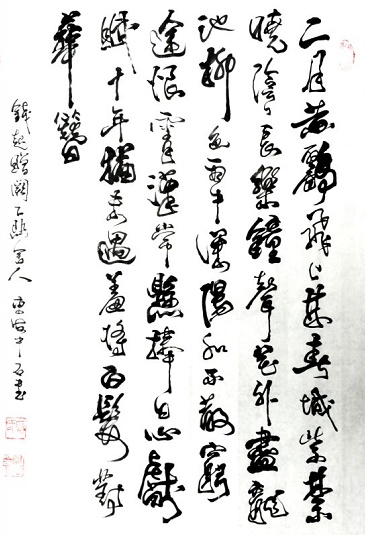 二月黃鸝飛上林春城紫禁
曉陰々長樂鐘聲花外盡龍
池柳色雨中深陽和不散窮
途恨霄漢常懸捧日心獻
賦十年猶未遇羞將白髮對
華簪
錢起贈闕下裴舍人 書